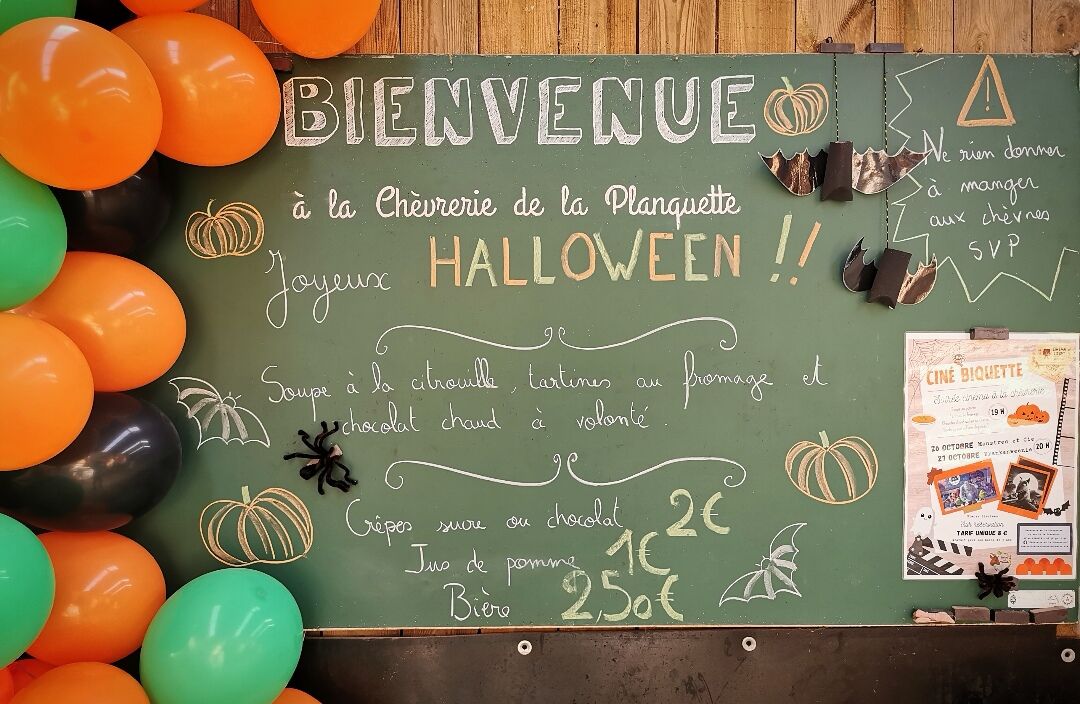 BIENVENUE
à la Chèvrerie de la Planquette
Joyeux HALLOWEEN !!
Soupe à la citrouille, tartines au fromage et
chocolat chaud à volonté.
Crêpes sucre ou chocolat 2€
Jus de pomme 1€
Bière 2,50€
!
Ne rien donner
à manger
aux chèvres
SVP
CINÉ BIQUETTE
Soirée cinéma à la chèvrerie
19 H
26 OCTOBRE Monstres et Cie 20 H
27 OCTOBRE Frankenweenie
Sur réservation
TARIF UNIQUE 8 €